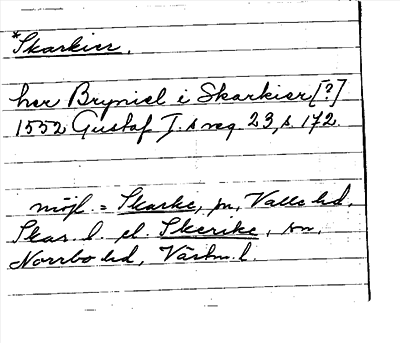 *Skarkier.
her Bryniel i Skarkier [?]
1552 Gustaf I.s reg 23, s 172.
möjl. = Skarke, sn, Valle hd,
Skar. l. el. Skerike, sn,
Norrbo hd, Västm. l.